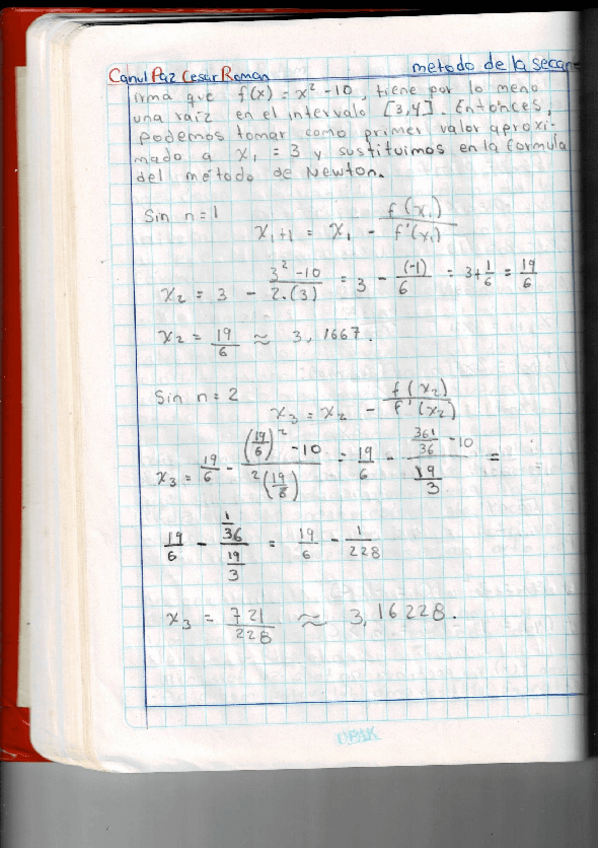 Canul Paz Cesar Roman metodo de la secan
irma que f(x) = x² -10, tiene por lo meno
una raíz en el intervalo [3,4]. Entonces,
podemos tomar como primer valor aproxi-
mado a x₁ = 3 y sustituimos en la formula
del método de Newton.
Sin n=1
x₁+1 = x₁ - f(x₁)/f'(x₁)
x₂ = 3 - (3² -10)/(2.(3)) = 3 - (-1)/6 = 3+1/6 = 19/6
x₂ = 19/6 ≈ 3,1667.
Sin n=2
x₃ = x₂ - f(x₂)/f'(x₂)
x₃ = 19/6 - ((19/6)² -10)/(2(19/6)) = 19/6 - (361/36 -10)/(19/3) =
19/6 - (1/36)/(19/3) = 19/6 - 1/228
x₃ = 721/228 ≈ 3,16228.